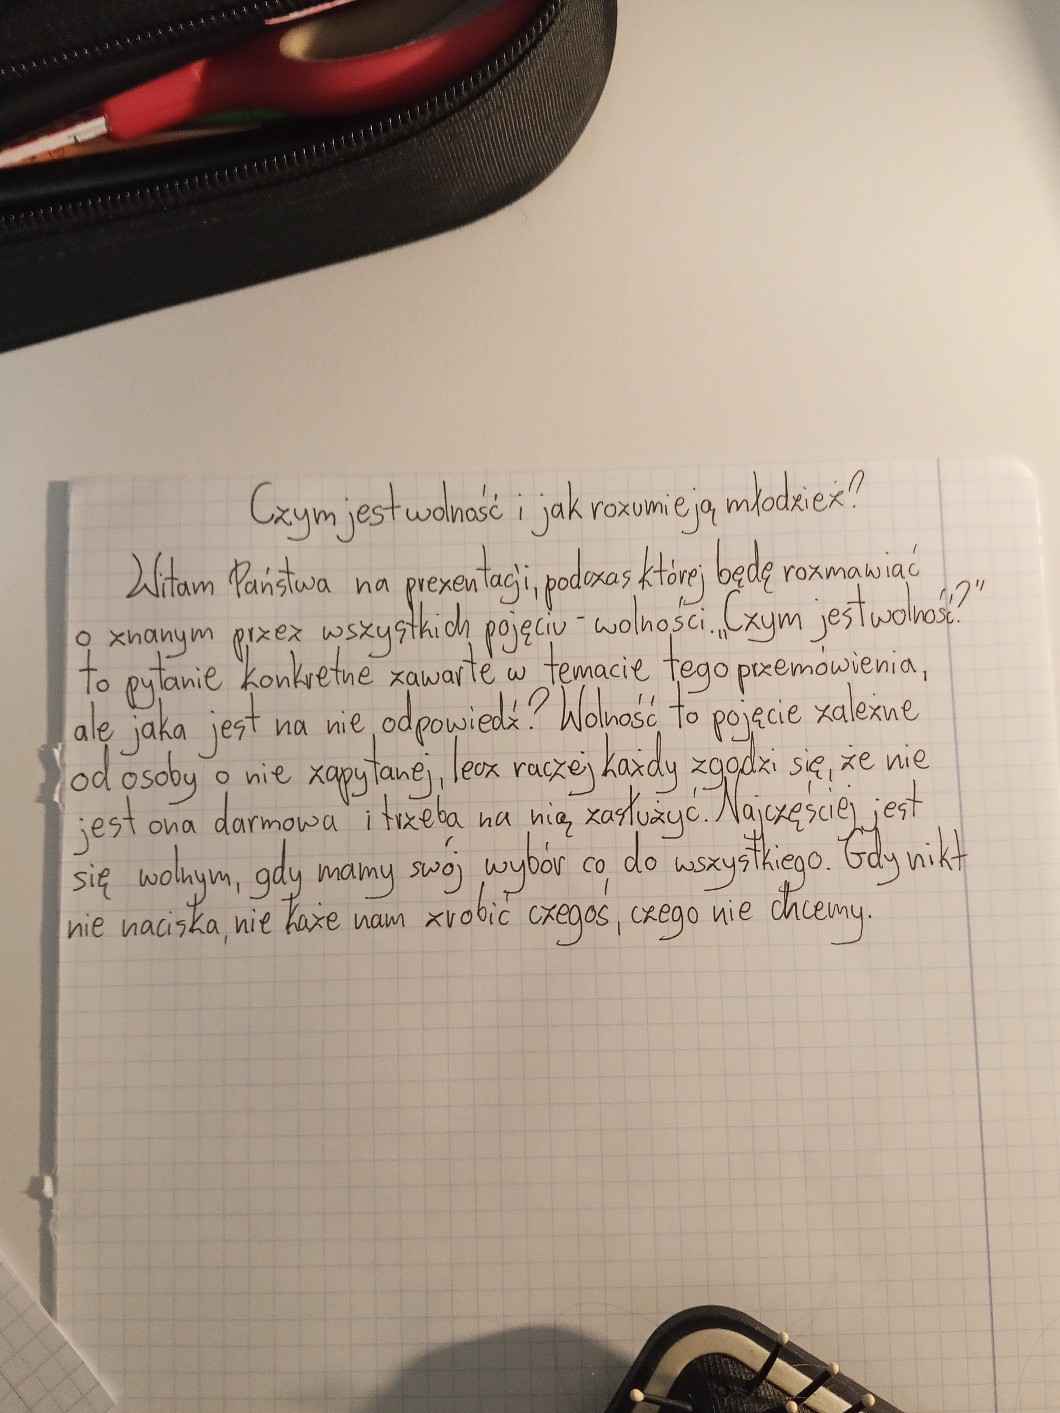 Czym jest wolność i jak rozumie ją młodzież?
Witam Państwa na prezentacji, podczas której będę rozmawiać
o znanym przez wszystkich pojęciu - wolności. „Czym jest wolność?”
to pytanie konkretne zawarte w temacie tego przemówienia,
ale jaka jest na nie odpowiedź? Wolność to pojęcie zależne
od osoby o nie zapytanej, lecz raczej każdy zgodzi się, że nie
jest ona darmowa i trzeba na nią zasłużyć. Najczęściej jest
się wolnym, gdy mamy swój wybór co do wszystkiego. Gdy nikt
nie naciska, nie każe nam zrobić czegoś, czego nie chcemy.